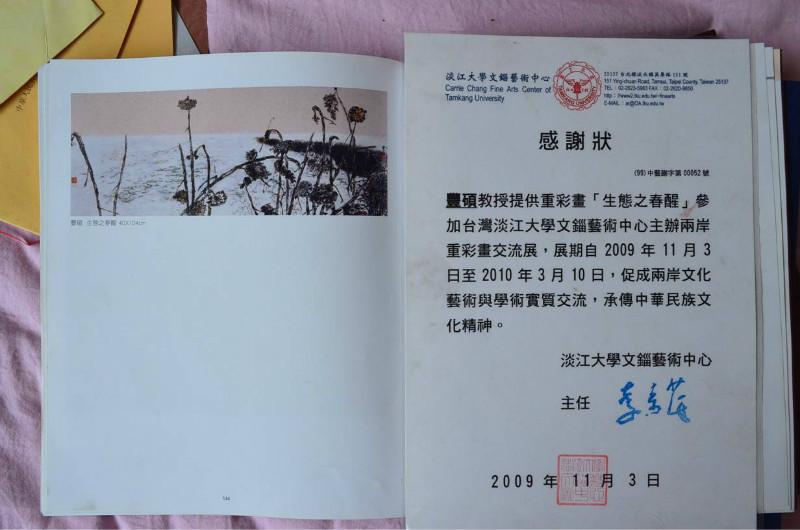 中華人
豐碩 生態之春醒 40X104cm
144
淡江大學文錙藝術中心
Carrie Chang Fine Arts Center of
Tamkang University
25137 台北縣淡水鎮英專路 151 號
151 Ying-chuan Road, Tamsui, Taipei County, Taiwan 25137
TEL : 02-2623-5983 FAX : 02-2620-9650
http : //www2.tku.edu.tw/~finearts
E-MAIL : ac@OA.tku.edu.tw
TAMKANG UNIVERSITY
感謝狀
(99) 中藝謝字第 00052 號
豐碩教授提供重彩畫「生態之春醒」參
加台灣淡江大學文錙藝術中心主辦兩岸
重彩畫交流展，展期自 2009 年 11 月 3
日至 2010 年 3 月 10 日，促成兩岸文化
藝術與學術實質交流，承傳中華民族文
化精神。
淡江大學文錙藝術中心
主任
2009 年 11 月 3 日